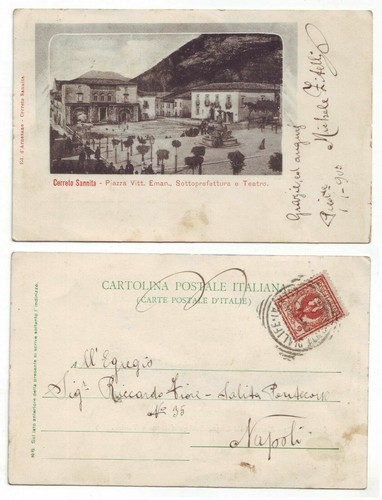 Ed. d'Agostino - Cerreto Sannita
Cerreto Sannita - Piazza Vitt. Eman., Sottoprefettura e Teatro.
Grazie, ed auguri
Michele
1-1-900
CARTOLINA POSTALE ITALIANA
(CARTE POSTALE D'ITALIE)
NB. Sul lato anteriore della presente si scrive soltanto l'indirizzo.
All'Egregio
Sigr Roccardo Fiore - Salita Pontecorvo
No 35
Napoli
ALIFE